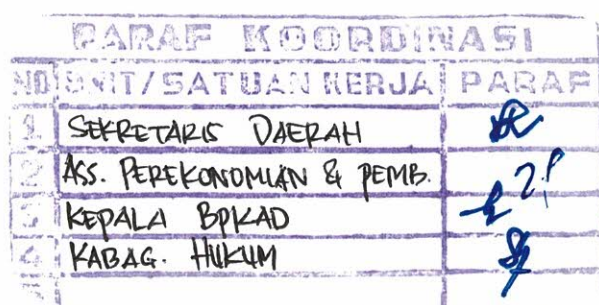 PARAF KOORDINASI
NO UNIT/SATUAN KERJA PARAF
1 SEKRETARIS DAERAH
2 ASS. PEREKONOMIAN & PEMB.
3 KEPALA BPKAD
4 KABAG. HUKUM